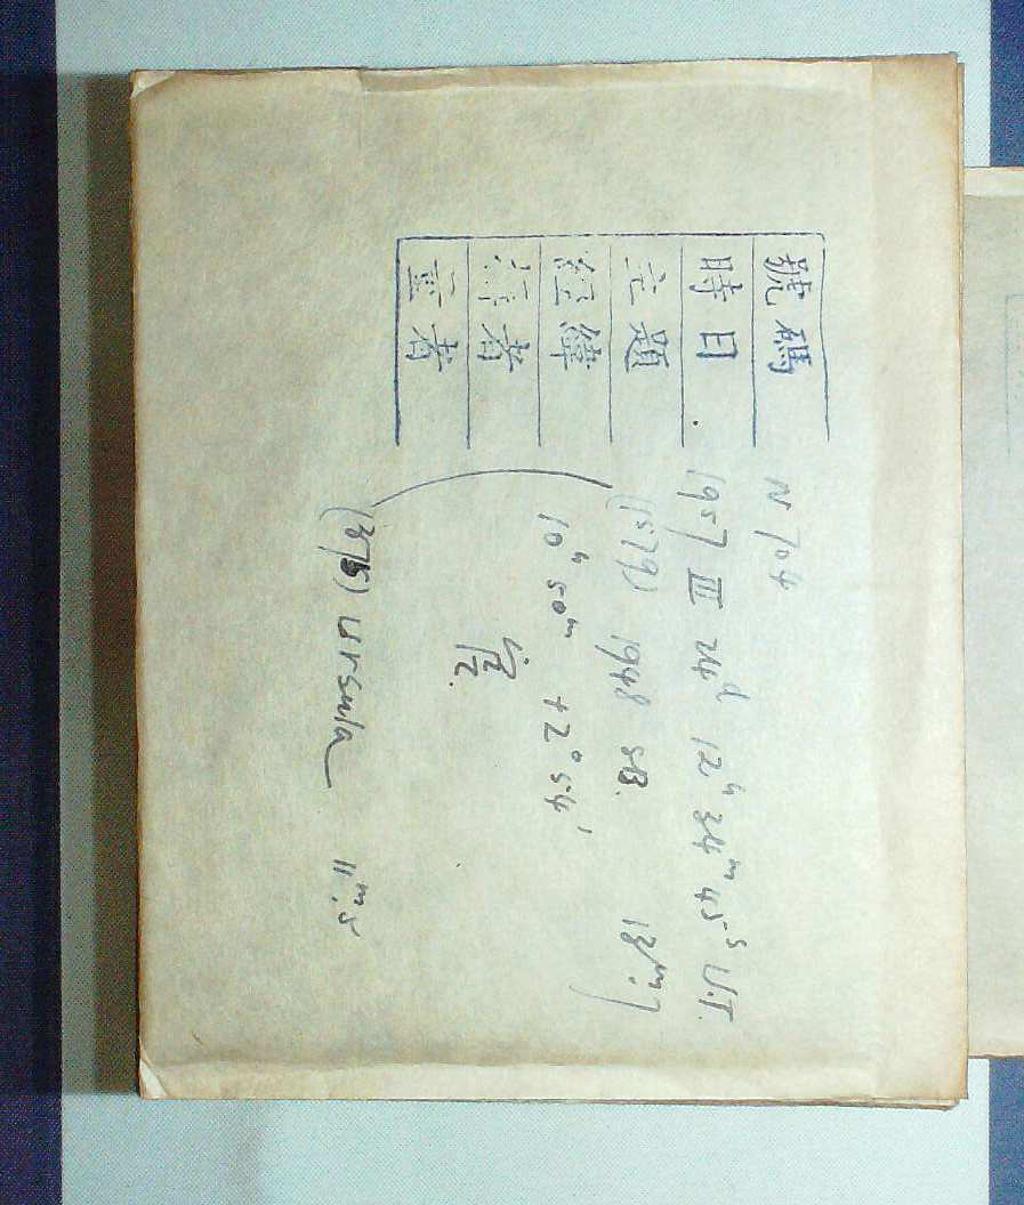 號碼 N 704
時日 1957 III 24ᵈ 12ʰ 34ᵐ 45ˢ U.T.
主題 (1579) 1948 SB. 13ᵐ.7
經緯 10ʰ 50ᵐ +2°54'
者
量者
(375) Ursula 11ᵐ.5